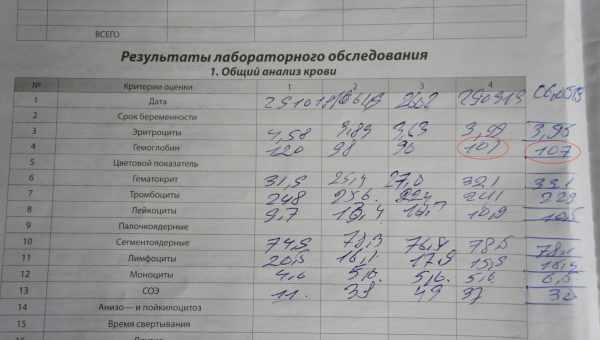 ВСЕГО
Результаты лабораторного обследования
1. Общий анализ крови
№ Критерии оценки 1 2 3 4
1 Дата
2 Срок беременности
3 Эритроциты 4,58 3,89 3,63 3,99 3,95
4 Гемоглобин 120 98 96 107 107
5 Цветовой показатель
6 Гематокрит 31,5 32,1 33,1
7 Тромбоциты 248 256 241 229
8 Лейкоциты 9,7 13,4 10,9 10,5
9 Палочкоядерные
10 Сегментоядерные 74,9 78,3 76,4 78,5
11 Лимфоциты 20,5 16,1 17,8 15,9
12 Моноциты 4,6 5,6 5,6 5,6 6,5
13 СОЭ 11 38 49 37 32
14 Анизо — и пойкилоцитоз
15 Время свертывания